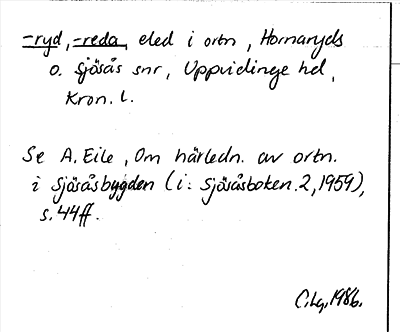 -ryd, -reda, eled i ortn, Hornaryds
o. Sjösås snr, Uppvidinge hd,
Kron. l.
Se A. Eile, Om härledn. av ortn.
i Sjösåsbygden (i: Sjösåsboken. 2, 1959),
s. 44 ff.
C. Lg. 1986.